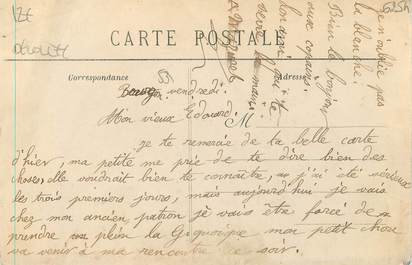 CARTE POSTALE
Correspondance
Adresse
vendredi.
Mon vieux Edouard.
M
je te remercie de ta belle carte
d'hier, ma petite me prie de te dire bien des
choses, elle voudrait bien te connaître, j'ai été sérieux
les trois premiers jours, mais aujourd'hui je vais
chez mon ancien patron je vais être forcé de
prendre plein la mon petit chou
va venir à ma rencontre ce soir.
j'en oublie pas
la blanche.
Bien le bonjour
aux copains.
ton ami qui te
serre la main